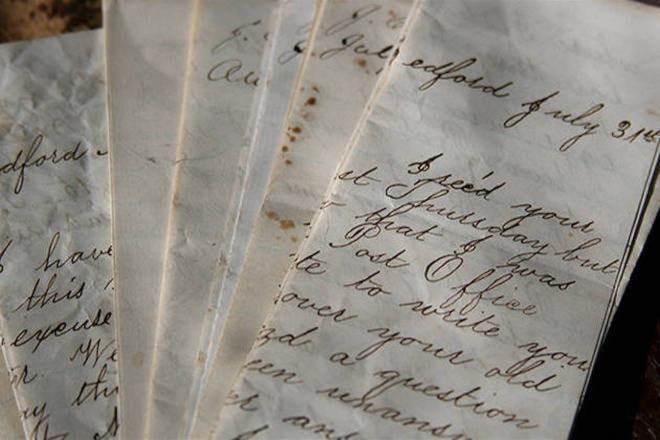 dford
have
this
excuse
r. We
ay thi
J.
Au
J.
J. Jul
edford July 31st
I rec'd your
st Thursday but
r that I was
Post Office
te to write you
over your old
nd a question
een unansw
er and